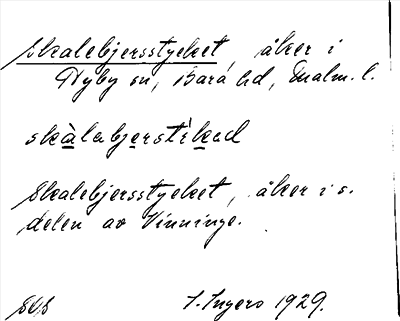 Skalebjersstycket, åker i
Nyby sn, Bara hd, Malm. l.
skàlabjerstikad
Skalebjersstycket, åker i s.
delen av Vinninge.
I. Ingers 1929.